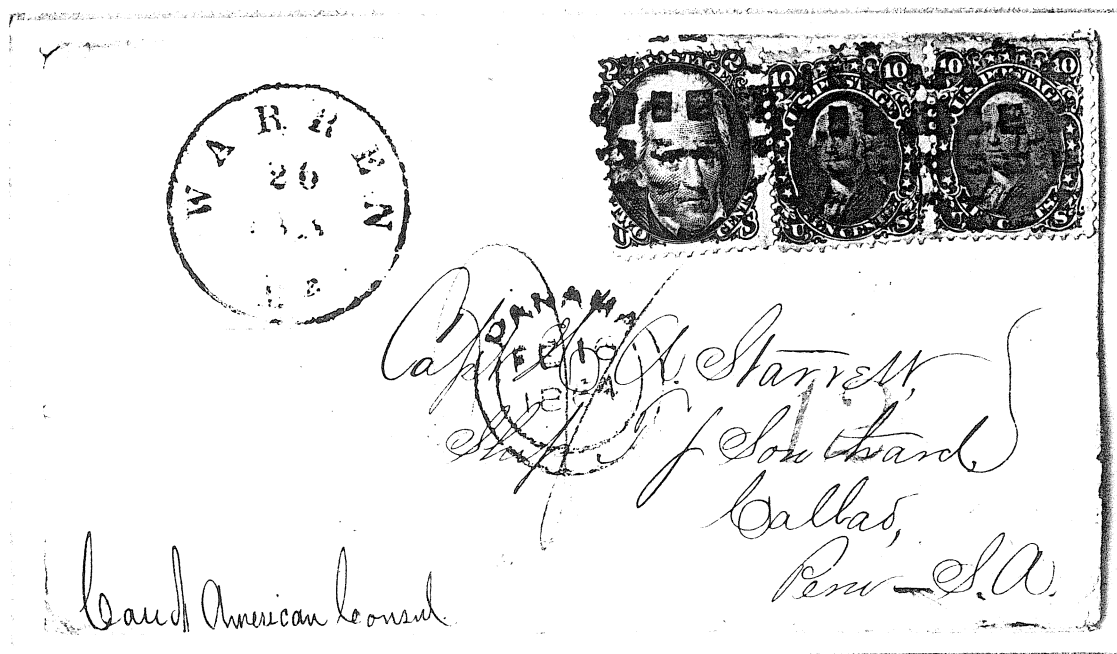 WARREN
20
U.S. POSTAGE
TWO CENTS
10 10
U.S. POSTAGE
TEN CENTS
10 10
U.S. POSTAGE
TEN CENTS
PANAMA
FE 10
Capt A. Starrett,
Ship T J Southard,
Callao,
Peru — S.A.
12
Care American Consul